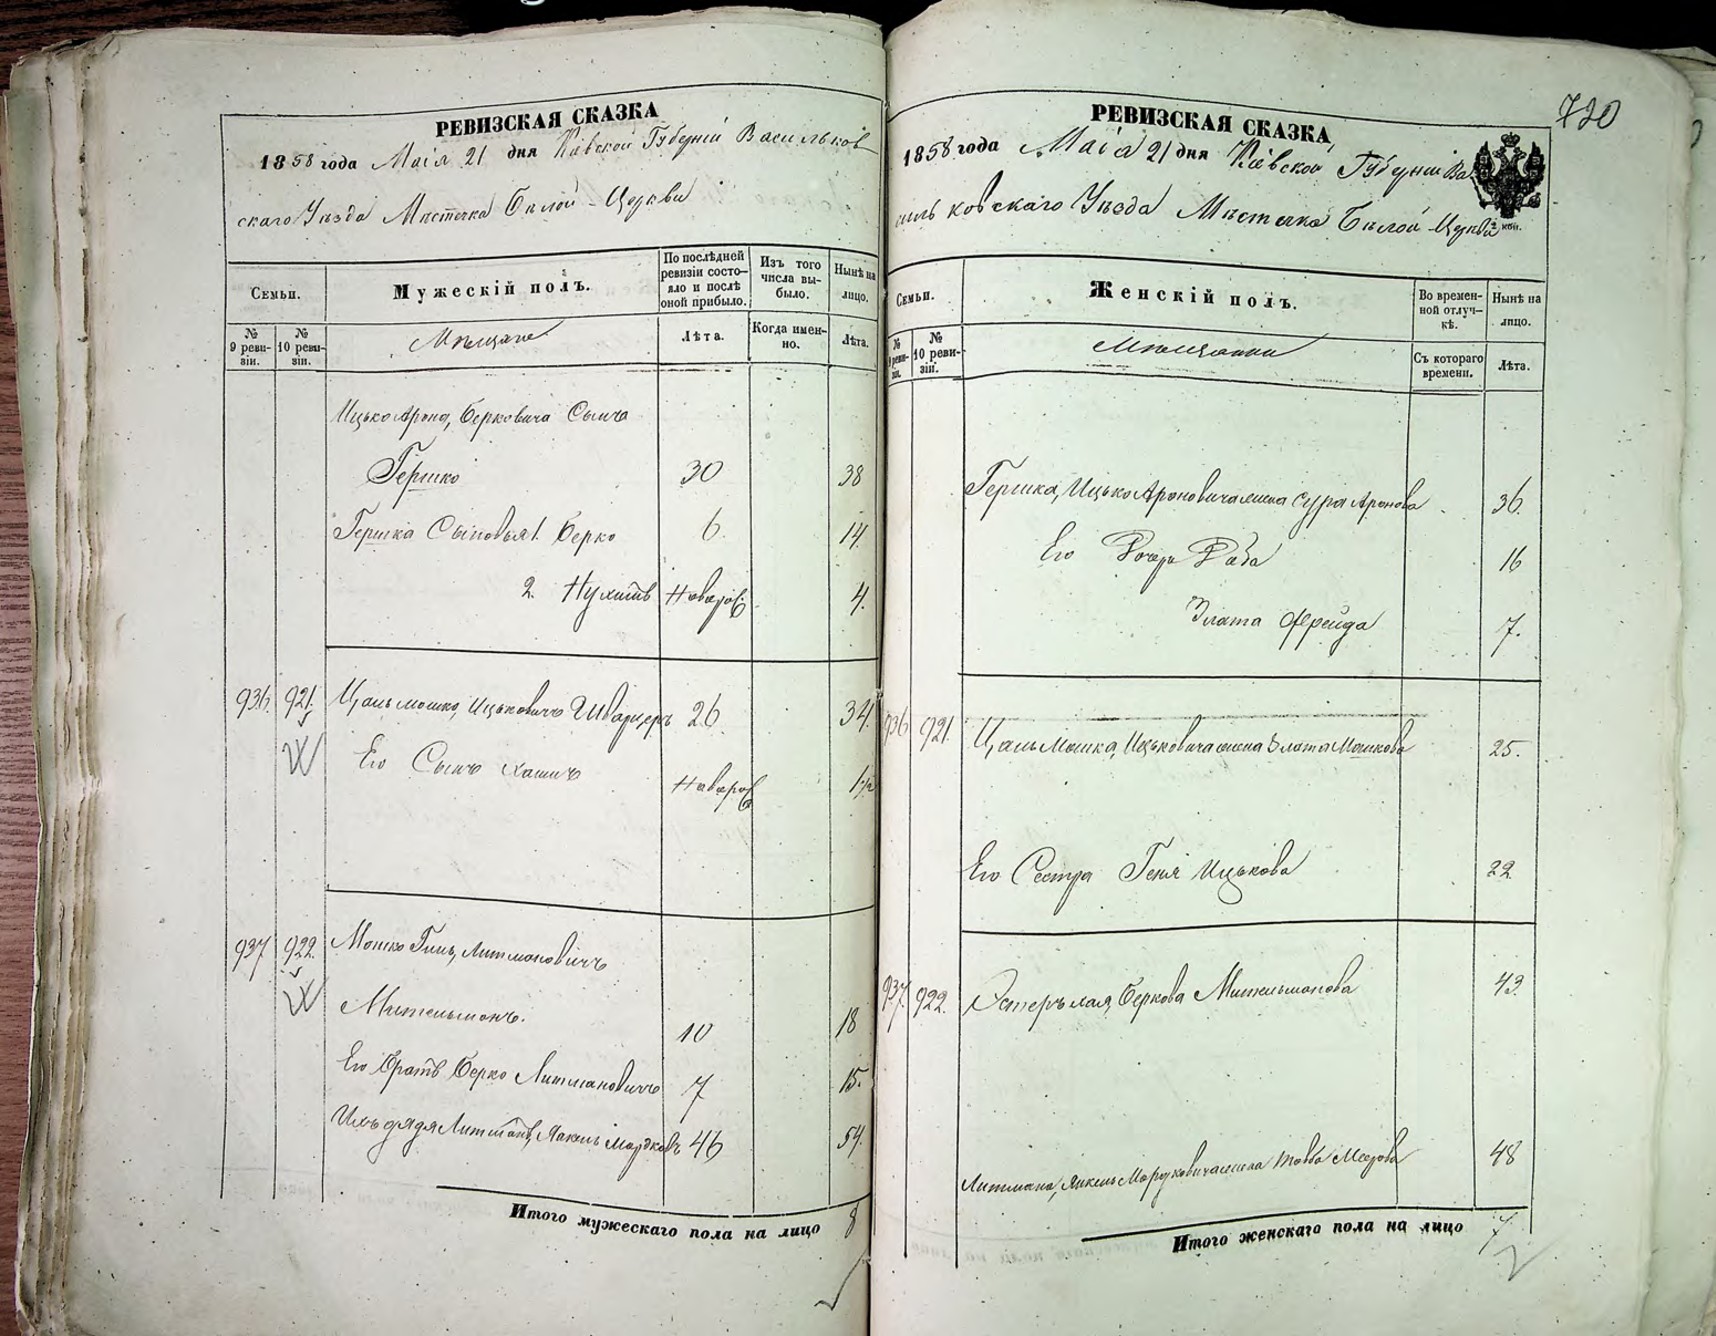 РЕВИЗСКАЯ СКАЗКА
1858 года Маія 21 дня Кіевской Губерніи Васильков
скаго Уѣзда Мѣстечка Бѣлой-Церкви
Семьи.
Мужескій полъ.
По послѣдней ревизіи состо-яло и послѣ оной прибыло.
Изъ того числа вы-было.
Нынѣ на лицо.
№ 9 реви-зіи.
№ 10 реви-зіи.
Мѣщане
Лѣта.
Когда имен-но.
Лѣта.
Ицько Арона, Берковича Сынъ
Гершко 30 38
Гершка Сыновья 1. Берко 6. 14.
2. Нухимъ Новорож. 4.
936. 921. Цаль Мошко, Ицьковичъ Шварцеръ 26 34.
Его Сынъ Хаимъ Новорож. 1½
937 922. Мошко Гиль, Литмановичъ
Мительманъ. 10 18
Его братъ Берко Литмановичъ 7 15.
Ихъ дядя Литманъ, Янкель Мордковъ 46 54.
Итого мужескаго пола на лицо 8
720
РЕВИЗСКАЯ СКАЗКА,
1858 года Маія 21 дня Кіевской Губерніи Ва
сильковскаго Уѣзда Мѣстечка Бѣлой-Церкви
коп.
Семьи.
Женскій полъ.
Во времен-ной отлуч-кѣ.
Нынѣ на лицо.
№ 9 реви-зіи.
№ 10 реви-зіи.
Мѣщанки
Съ котораго времени.
Лѣта.
Гершка, Ицько Ароновича жена Сура Аронова 36.
Его Дочери Раза 16
Злата Фрейда 7.
936 921. Цаль Мошка, Ицьковича жена Злата Мошкова 25.
Его Сестра Геня Ицькова 22
937. 922. Эстеръ Лая, Беркова Мительманова 43
Литмана, Янкель Мордковича жена Товба Меерова 48
Итого женскаго пола на лицо 7